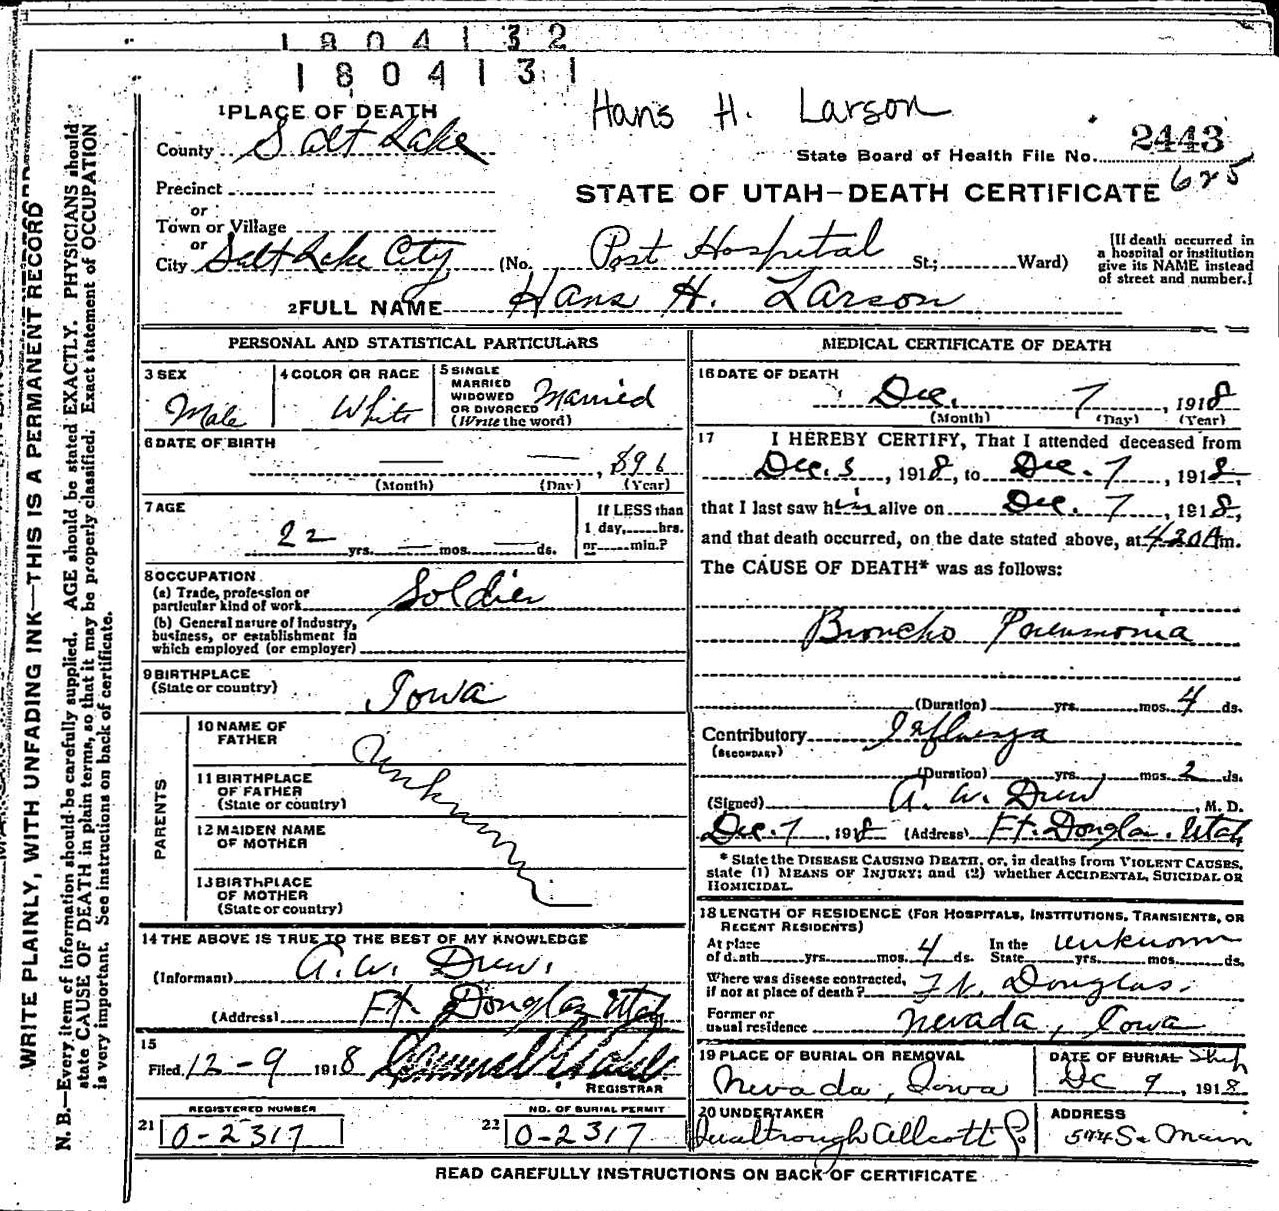 1804132
1804131
Hans H. Larson
1 PLACE OF DEATH
County Salt Lake
State Board of Health File No. 2443
625
Precinct
STATE OF UTAH—DEATH CERTIFICATE
or
Town or Village
or
City Salt Lake City (No. Post Hospital St.; Ward)
[If death occurred in
a hospital or institution
give its NAME instead
of street and number.]
2 FULL NAME Hans H. Larson
PERSONAL AND STATISTICAL PARTICULARS
3 SEX
Male
4 COLOR OR RACE
White
5 SINGLE
MARRIED
WIDOWED
OR DIVORCED
(Write the word)
Married
6 DATE OF BIRTH
— — , 1896
(Month) (Day) (Year)
7 AGE
22 yrs. — mos. ds.
If LESS than
1 day, hrs.
or min.?
8 OCCUPATION
(a) Trade, profession or
particular kind of work Soldier
(b) General nature of Industry,
business, or establishment in
which employed (or employer)
9 BIRTHPLACE
(State or country) Iowa
PARENTS
10 NAME OF
FATHER
11 BIRTHPLACE
OF FATHER
(State or country)
12 MAIDEN NAME
OF MOTHER
13 BIRTHPLACE
OF MOTHER
(State or country)
Unknown
14 THE ABOVE IS TRUE TO THE BEST OF MY KNOWLEDGE
(Informant) A. W. Drew.
(Address) Ft. Douglas Utah
15
Filed 12-9 1918
REGISTRAR
REGISTERED NUMBER
21 0-2317
NO. OF BURIAL PERMIT
22 0-2317
MEDICAL CERTIFICATE OF DEATH
16 DATE OF DEATH
Dec. 7, 1918
(Month) (Day) (Year)
17 I HEREBY CERTIFY, That I attended deceased from
Dec. 3, 1918, to Dec. 7, 1918,
that I last saw him alive on Dec. 7, 1918,
and that death occurred, on the date stated above, at 4.20 A m.
The CAUSE OF DEATH* was as follows:
Broncho Pneumonia
(Duration) yrs. mos. 4 ds.
Contributory Influenza
(SECONDARY)
(Duration) yrs. mos. 2 ds.
(Signed) A. W. Drew, M. D.
Dec. 7, 1918 (Address) Ft. Douglas. Utah
* State the DISEASE CAUSING DEATH, or, in deaths from VIOLENT CAUSES,
state (1) MEANS OF INJURY; and (2) whether ACCIDENTAL, SUICIDAL OR
HOMICIDAL.
18 LENGTH OF RESIDENCE (FOR HOSPITALS, INSTITUTIONS, TRANSIENTS, OR
RECENT RESIDENTS)
At place
of death yrs. mos. 4 ds.
In the
State yrs. mos. ds.
unknown
Where was disease contracted,
if not at place of death? Ft. Douglas.
Former or
usual residence Nevada, Iowa
19 PLACE OF BURIAL OR REMOVAL
Nevada, Iowa
DATE OF BURIAL Ship
Dc 9, 1918
20 UNDERTAKER
Qualtrough Allcott Co
ADDRESS
574 So Main
READ CAREFULLY INSTRUCTIONS ON BACK OF CERTIFICATE
WRITE PLAINLY, WITH UNFADING INK—THIS IS A PERMANENT RECORD
N. B.—Every item of information should be carefully supplied. AGE should be stated EXACTLY. PHYSICIANS should
state CAUSE OF DEATH in plain terms, so that it may be properly classified. Exact statement of OCCUPATION
is very important. See instructions on back of certificate.